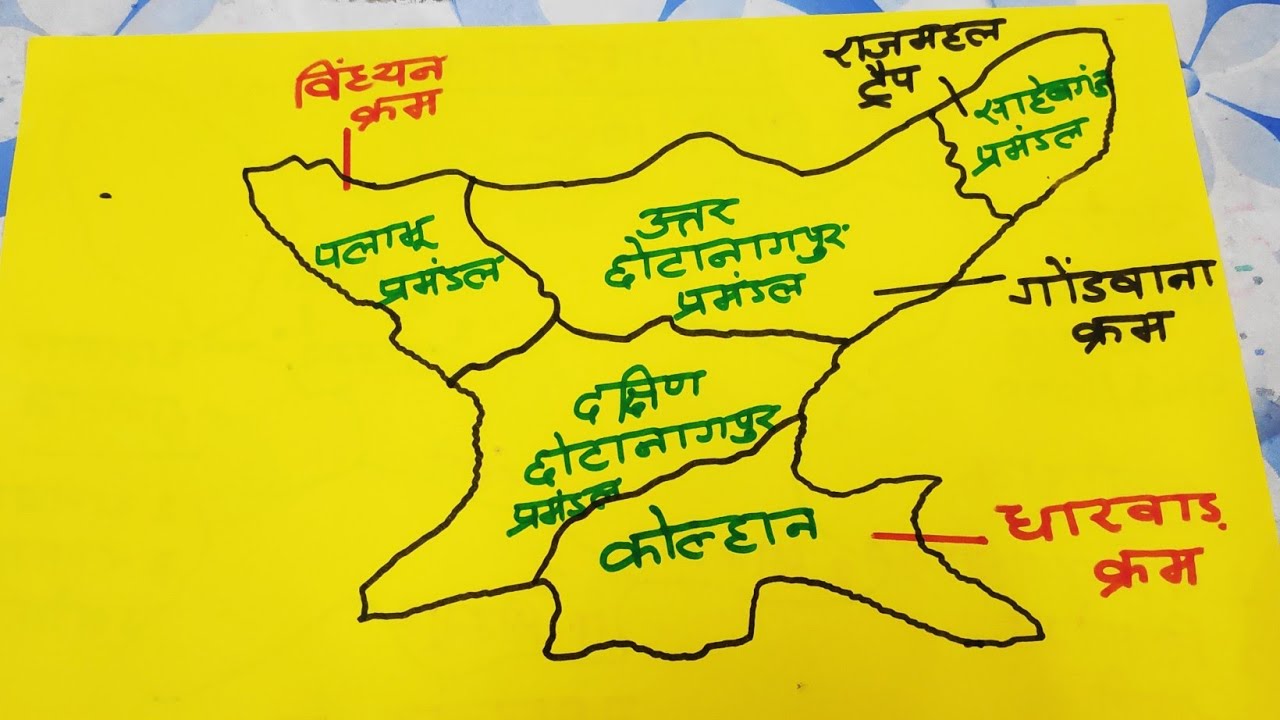 विंध्यन
क्रम
राजमहल
ट्रैप
साहेबगंज
प्रमंडल
पलामू
प्रमंडल
उत्तर
छोटानागपुर
प्रमंडल
गोंडवाना
क्रम
दक्षिण
छोटानागपुर
प्रमंडल
कोल्हान
धारवाड़
क्रम